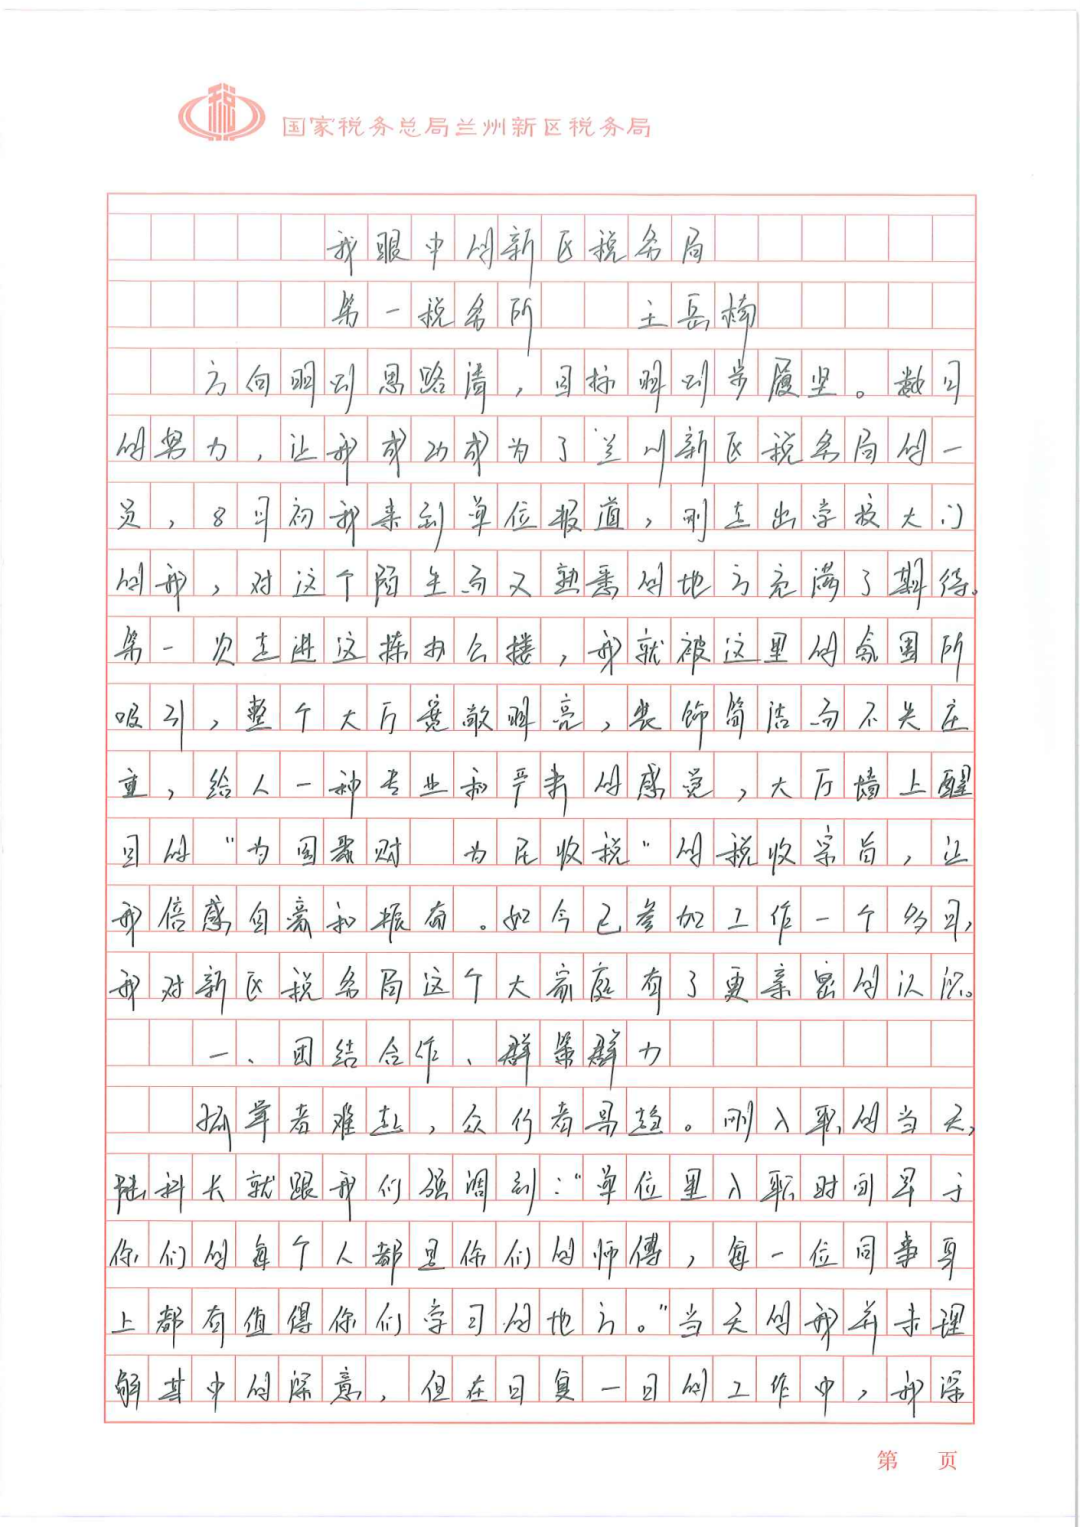 国家税务总局兰州新区税务局
我眼中的新区税务局
第一税务所 王岳楠
方向明则思路清，目标明则步履坚。数月
的努力，让我成功成为了兰州新区税务局的一
员，8月初我来到单位报道，刚走出学校大门
的我，对这个陌生而又熟悉的地方充满了期待。
第一次走进这栋办公楼，我就被这里的氛围所
吸引，整个大厅宽敞明亮，装饰简洁而不失庄
重，给人一种专业和严肃的感觉，大厅墙上醒
目的“为国聚财 为民收税”的税收宗旨，让
我倍感自豪和振奋。如今已参加工作一个多月，
我对新区税务局这个大家庭有了更亲密的认识。
一、团结合作、群策群力
孤举者难起，众行者易趋。刚入职的当天，
陆科长就跟我们强调到：“单位里入职时间早于
你们的每个人都是你们的师傅，每一位同事身
上都有值得你们学习的地方。”当天的我并未理
解其中的深意，但在日复一日的工作中，我深
第 页